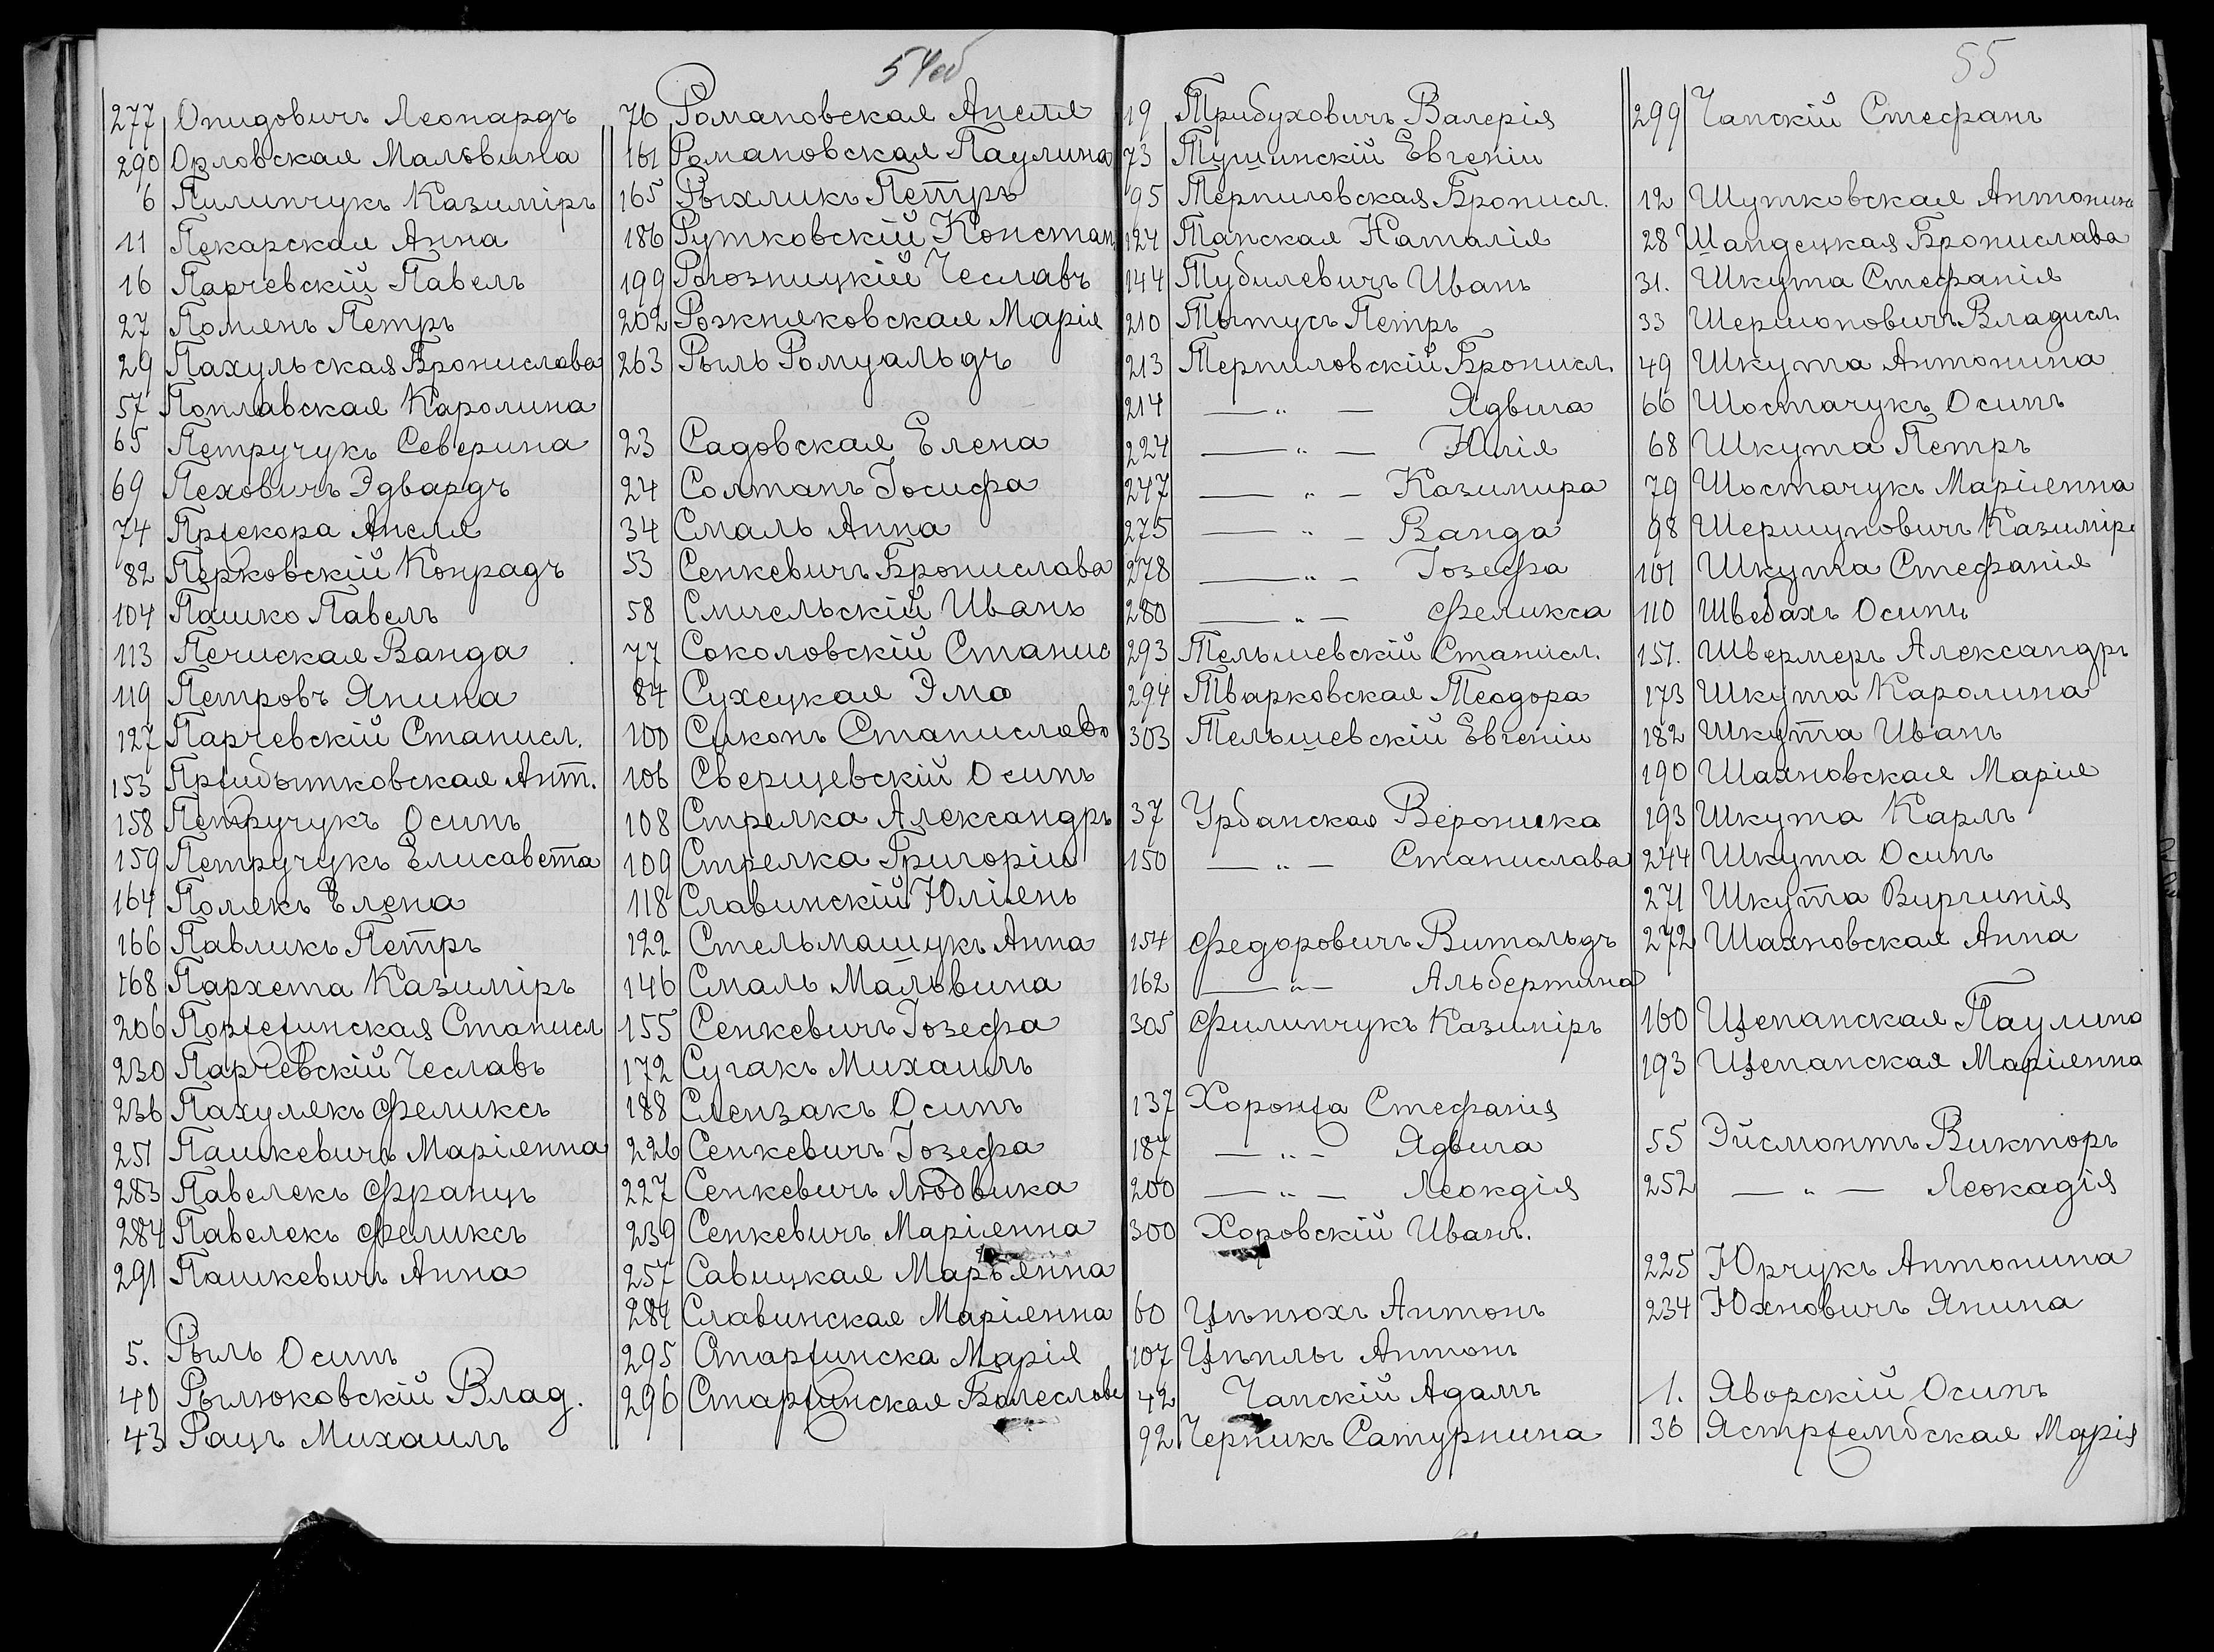 54об
277 Онидовичъ Леонардъ
290 Орловская Мальвина
6 Пилипчукъ Казиміръ
11 Пекарская Анна
16 Парчевскій Павелъ
27 Помянъ Петръ
29 Пахульская Брониславa
57 Поплавская Каролина
65 Петручукъ Северина
69 Пеховичъ Эдвардъ
74 Пржекора Анеля
82 Перковскій Конрадъ
104 Пашко Павелъ
113 Печиская Ванда
119 Петровъ Янина
127 Парчевскій Станисл.
153 Пржибытковская Ант.
158 Петручукъ Осипъ
159 Петручукъ Елисавета
164 Полякъ Елена
166 Павликъ Петръ
168 Пархета Казиміръ
206 Поржежинская Станисл
230 Парчевскій Чеславъ
236 Пахулякъ Феликсъ
251 Пашкевичъ Маріянна
283 Павелекъ Францъ
284 Павелекъ Феликсъ
291 Пашкевичъ Анна
5. Рыль Осипъ
40 Рылюковскій Влад.
43 Рацъ Михаилъ
76 Романовская Анеля
161 Романовская Паулина
165 Рыхликъ Петръ
186 Рутковскій Констан
199 Рогозницкій Чеславъ
202 Рожняковская Марія
263 Рыль Ромуальдъ
23 Садовская Елена
24 Солтанъ Іосифа
34 Смаль Анна
53 Сенкевичъ Бронислава
58 Смгельскій Иванъ
77 Соколовскій Станис
84 Сухецкая Эма
100 Сиконъ Станислава
106 Сверщевскій Осипъ
108 Стрелка Александръ
109 Стрелка Григорій
118 Славинскій Юліянъ
122 Стельмащукъ Анна
146 Смаль Мальвина
155 Сенкевичъ Іозефа
172 Сугакъ Михаилъ
188 Слензакъ Осипъ
226 Сенкевичъ Іозефа
227 Сенкевичъ Людвика
239 Сенкевичъ Маріянна
257 Савицкая Марьянна
284 Славинская Маріянна
295 Старжинска Марія
296 Старжинская Болеслава
55
19 Трибуховичъ Валерія
73 Тушинскій Евгеніи
95 Терпиловская Бронисл.
124 Танская Наталія
144 Тубилевичъ Иванъ
210 Тытусъ Петръ
213 Терпиловскій Бронисл.
214 — „ — Ядвига
224 — „ — Юлія
247 — „ — Казимира
275 — „ — Ванда
278 — „ — Іозефа
280 — „ — Феликса
293 Тельшевскій Станисл.
294 Тварковская Теодора
303 Тельшевскій Евгеніи
37 Урбанская Вероника
150 — „ — Станислава
154 Федоровичъ Витольдъ
162 — „ — Альбертина
305 Филипчукъ Казиміръ
137 Хоронжа Стефанія
187 — „ — Ядвига
200 — „ — Леокдія
300 Хоровскій Иванъ.
60 Цѣпюхъ Антонъ
107 Цѣплы Антонъ
42 Чапскій Адамъ
92 Черникъ Сатурнина
299 Чапскій Стефанъ
12 Шутковская Антонин
28 Шандецкая Бронислава
31. Шкута Стефанія
33 Шерионовичъ Владисл
49 Шкута Антонина
66 Шостачукъ Осипъ
68 Шкута Петръ
79 Шостачукъ Маріянна
98 Шершуновичъ Казимірa
101 Шкута Стефанія
110 Шведахъ Осипъ
151. Швермеръ Александръ
173 Шкута Каролина
182 Шкута Иванъ
190 Шахновская Марія
193 Шкута Карлъ
244 Шкута Осипъ
271 Шкута Виргинія
272 Шахновская Анна
160 Щепанская Паулина
193 Щепанская Маріянна
55 Эйсмонтъ Викторъ
252 — „ — Леокадія
225 Юрчукъ Антонина
234 Юхновичъ Янина
1. Яворскій Осипъ
36 Ястржембская Марія